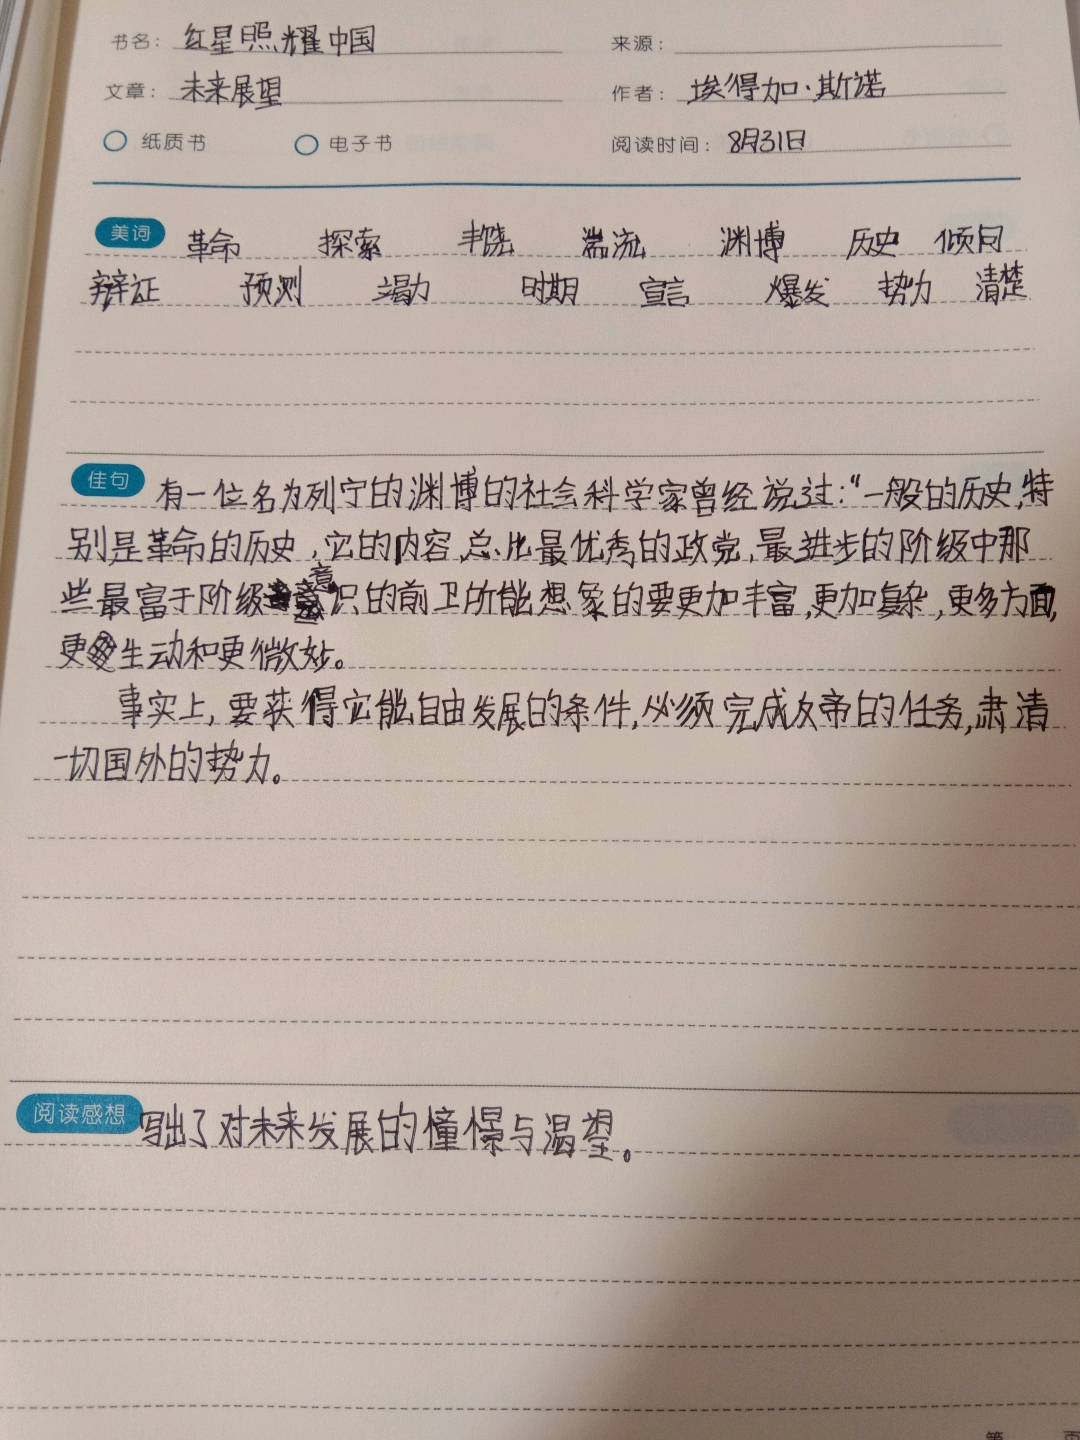 书名： 红星照耀中国 来源：
文章： 未来展望 作者： 埃得加·斯诺
纸质书 电子书 阅读时间： 8月31日
美词 革命 探索 丰饶 湍流 渊博 历史 倾向
辩证 预测 竭力 时期 宣言 爆发 势力 清楚
佳句 有一位名为列宁的渊博的社会科学家曾经说过:“一般的历史,特
别是革命的历史,它的内容,总比最优秀的政党,最进步的阶级中那
些最富于阶级意识的前卫所能想象的要更加丰富,更加复杂,更多方面,
更生动和更微妙。
事实上,要获得它能自由发展的条件,必须完成反帝的任务,肃清
一切国外的势力。
阅读感想 写出了对未来发展的憧憬与渴望。
第 页